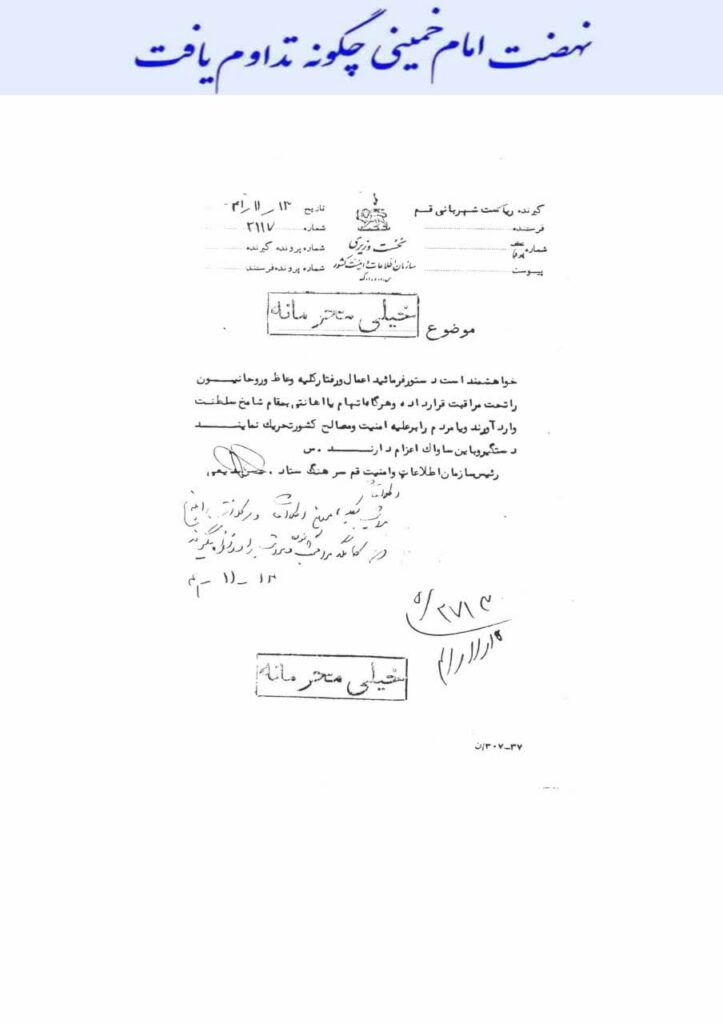 نهضت امام خمینی چگونه تداوم یافت
گیرنده ریاست شهربانی قم
فرستنده
شماره عطف
پیوست
نخست وزیری
سازمان اطلاعات و امنیت کشور
س.ا.و.ا.ک
تاریخ ۱۳_۱۱_۴۱
شماره ۲۱۱۷
شماره پرونده گیرنده
شماره پرونده فرستنده
خیلی محرمانه
موضوع
خواهشمند است دستور فرمائید اعمال و رفتار کلیه وعاظ و روحانیون
را تحت مراقبت قرار داده و هرگاه اتهام یا اهانتی بمقام شامخ سلطنت
وارد آورند ویا مردم را بر علیه امنیت ومصالح کشور تحریک نمایند
دستگیر و باین ساواک اعزام دارند. س
رئیس سازمان اطلاعات وامنیت قم سرهنگ ستاد. بدیعی
اطلاعات
۱۳_۱۱_۴۱
۵/۲۷۱۳
خیلی محرمانه
۳۷_۳۰۷/ن